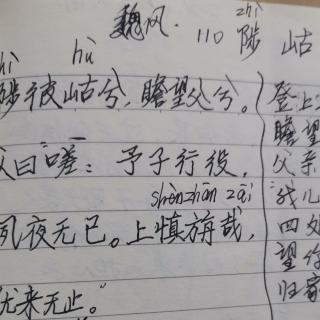 zhǐ
魏风. 110 陟 岵
hù
陟彼岵兮，瞻望父兮。
父曰"嗟：予子行役，
shènzhān zāi
夙夜无已。上慎旃哉，
犹来无止。"
登上
瞻望
父亲
"我儿
四处
望你
归家